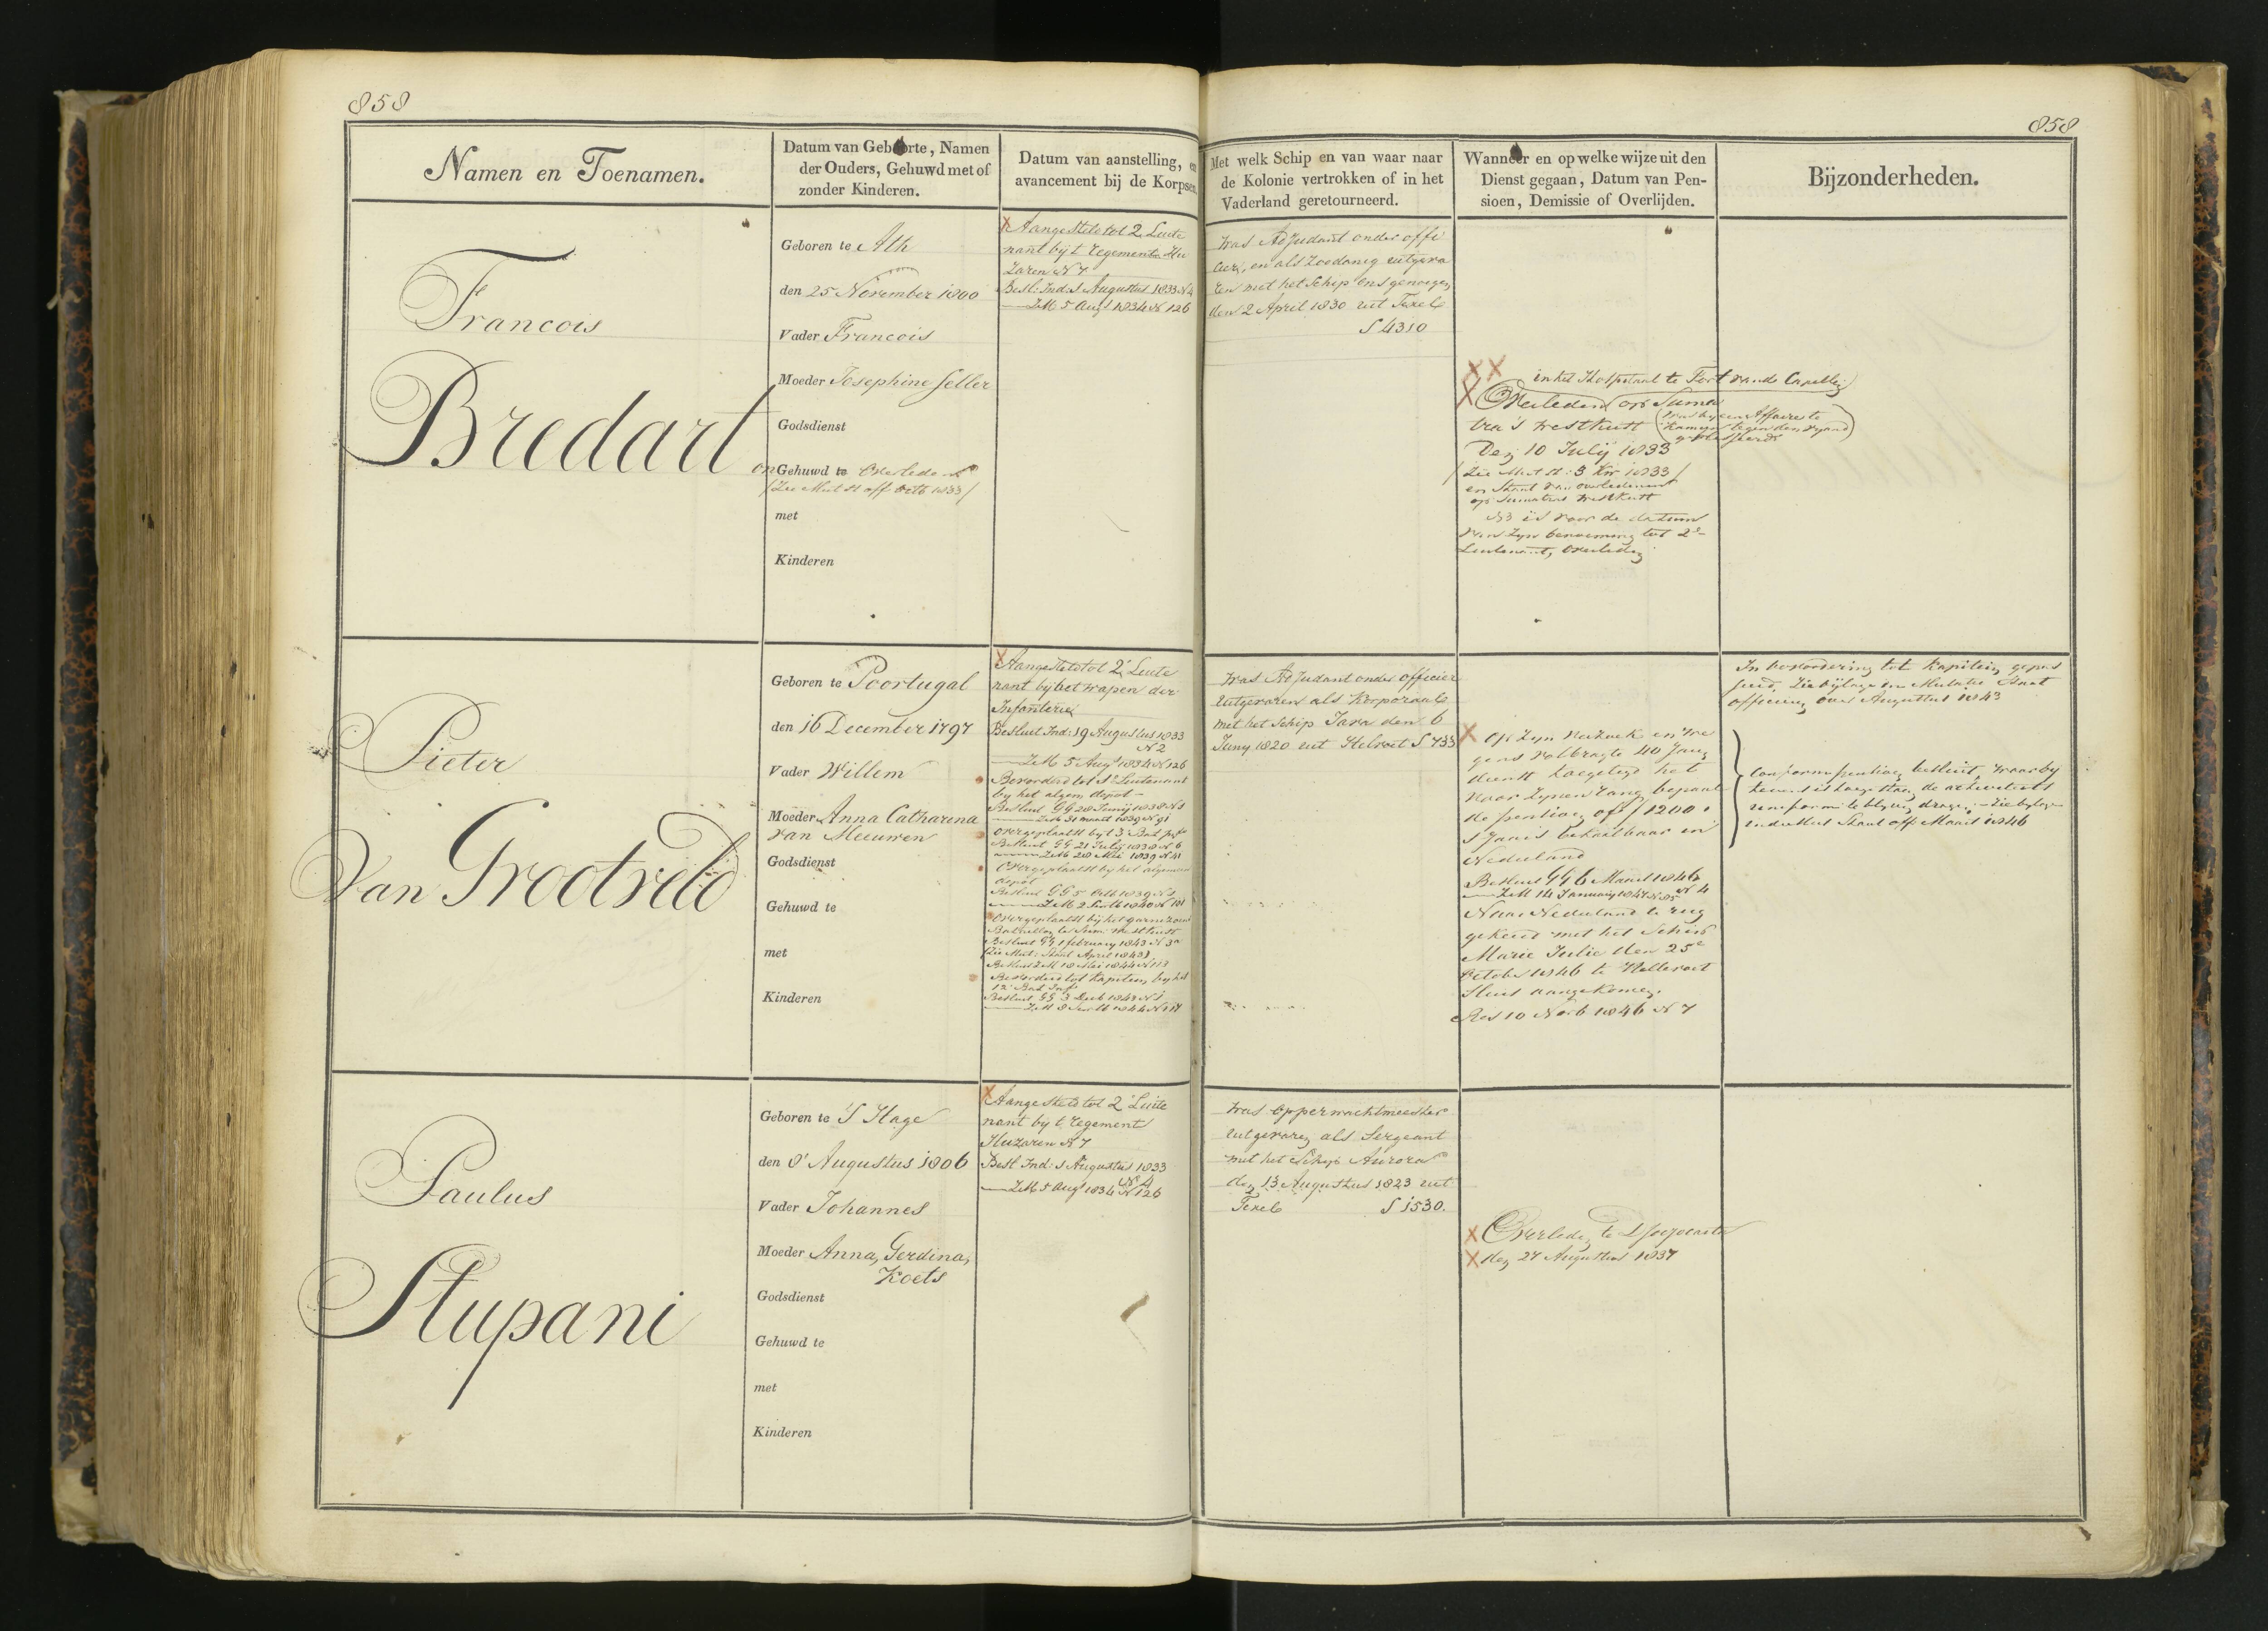 858
858
Namen en Toenamen.
Datum van Geboorte, Namen
der Ouders, Gehuwd met of
zonder Kinderen.
Datum van aanstelling, en
avancement bij de Korpsen.
Met welk Schip en van waar naar
de Kolonie vertrokken of in het
Vaderland geretourneerd.
Wanneer en op welke wijze uit den
Dienst gegaan, Datum van Pen-
sioen, Demissie of Overlijden.
Bijzonderheden.
Francois
Bredart
Geboren te Ath
den 25 November 1800
Vader Francois
Moeder Josephine Seller
Godsdienst
onGehuwd te Overleden
(Zie Mut St off Octb 1833)
met
Kinderen
Aangesteld tot 2 Luite
nant bij t regement Hu
zaren N 7
Besl: Ind: 1 Augustus 1833 N 4
ZM 5 Augt 1834 N 126
was Adjudant onder offi
cier, en als Zoodanig uitgeva
ren met het Schip ons genoegen
den 2 April 1830 uit Texel
S 4310
in het Hospitaal te Fort van de Capelle
Overleden op Suma
tra's Westkust
(was bij een Affaire te
Kamang tegen den vyand
geblesseerd)
Den 10 July 1833
(Zie Mut St: 3 Kw 1833)
en Staat van overledenen
op Sumatras Westkust
NB is voor de datum
van Zyn benoeming tot 2e
Luitenant, overleden
Pieter
Van Grootveld
Geboren te Poortugal
den 16 December 1797
Vader Willem
Moeder Anna Catharina
van Meeuwen
Godsdienst
Gehuwd te
met
Kinderen
Aangesteld tot 2 Luite
nant bij het wapen der
Infanterie
Besluit Ind: 19 Augustus 1833
N 2
ZM 5 Augt 1834 N 126
Bevorderd tot 1 Luitenant
by het algem depot
Besluit GG 28 Juny 1838 N 1
ZM 31 maart 1839 N 91
overgeplaatst by t 3 Bat Inf
Besluit GG 21 July 1838 N 6
ZM 28 Mei 1839 N 41
Overgeplaatst by het algemeen
depot
Besluit GG 5 Octb 1839 N 1
ZM 2 Septb 1840 N 101
overgeplaatst bij het garnizoens
Bataillon ter Sum: Westkust
Besluit GG 1 february 1843 N 3a
(Zie Mut: Staat April 1843)
Besluit ZM 18 Mei 1844 N 113
Bevorderd tot Kapitein by het
12 Bat Inf
Besluit GG 3 Decb 1843 N 1
ZM 8 Septb 1844 N 117
was Adjudant onder officier
uitgevaren als Korporaal
met het Schip Java den 6
Juny 1820 uit Helvoet S 733
op Zyn verzoek en we
gens volbragte 40 Jarig
dienst toegelegd het
naar Zynen rang bepaal
de pensioen of f 1200
s Jaars betaalbaar in
Nederland
Besluit GG 6 Maart 1846
N 4
ZM 14 January 1847 N 85
Naar Nederland te rug
gekeerd met het Schip
Marie Julie den 25e
October 1846 te Hellevoet
Sluis aangekomen.
Res 10 Novb 1846 N 7
In bevordering tot Kapitein gepas
seerd, Zie bijlage den Mutatie Staat
officieren over Augustus 1843
Conform pensioen besluit, waarby
tevens is toegestaan de activiteits
uniform te blyven dragen. Zie bylage
in de Mut Staat off Maart 1846
Paulus
Stupani
Geboren te 'S Hage
den 8' Augustus 1806
Vader Johannes
Moeder Anna, Gerdina,
Koets
Godsdienst
Gehuwd te
met
Kinderen
Aangesteld tot 2 Luite
nant by t regement
Huzaren N 7
Besl Ind: 1 Augustus 1833
N 4
ZM 5 Augt 1834 N 126
was opperwachtmeester
uitgevaren als Sergeant
met het Schip Aurora
den 13 Augustus 1823 uit
Texel S 1530.
Overleden te Djocjocarta
den 27 Augustus 1837